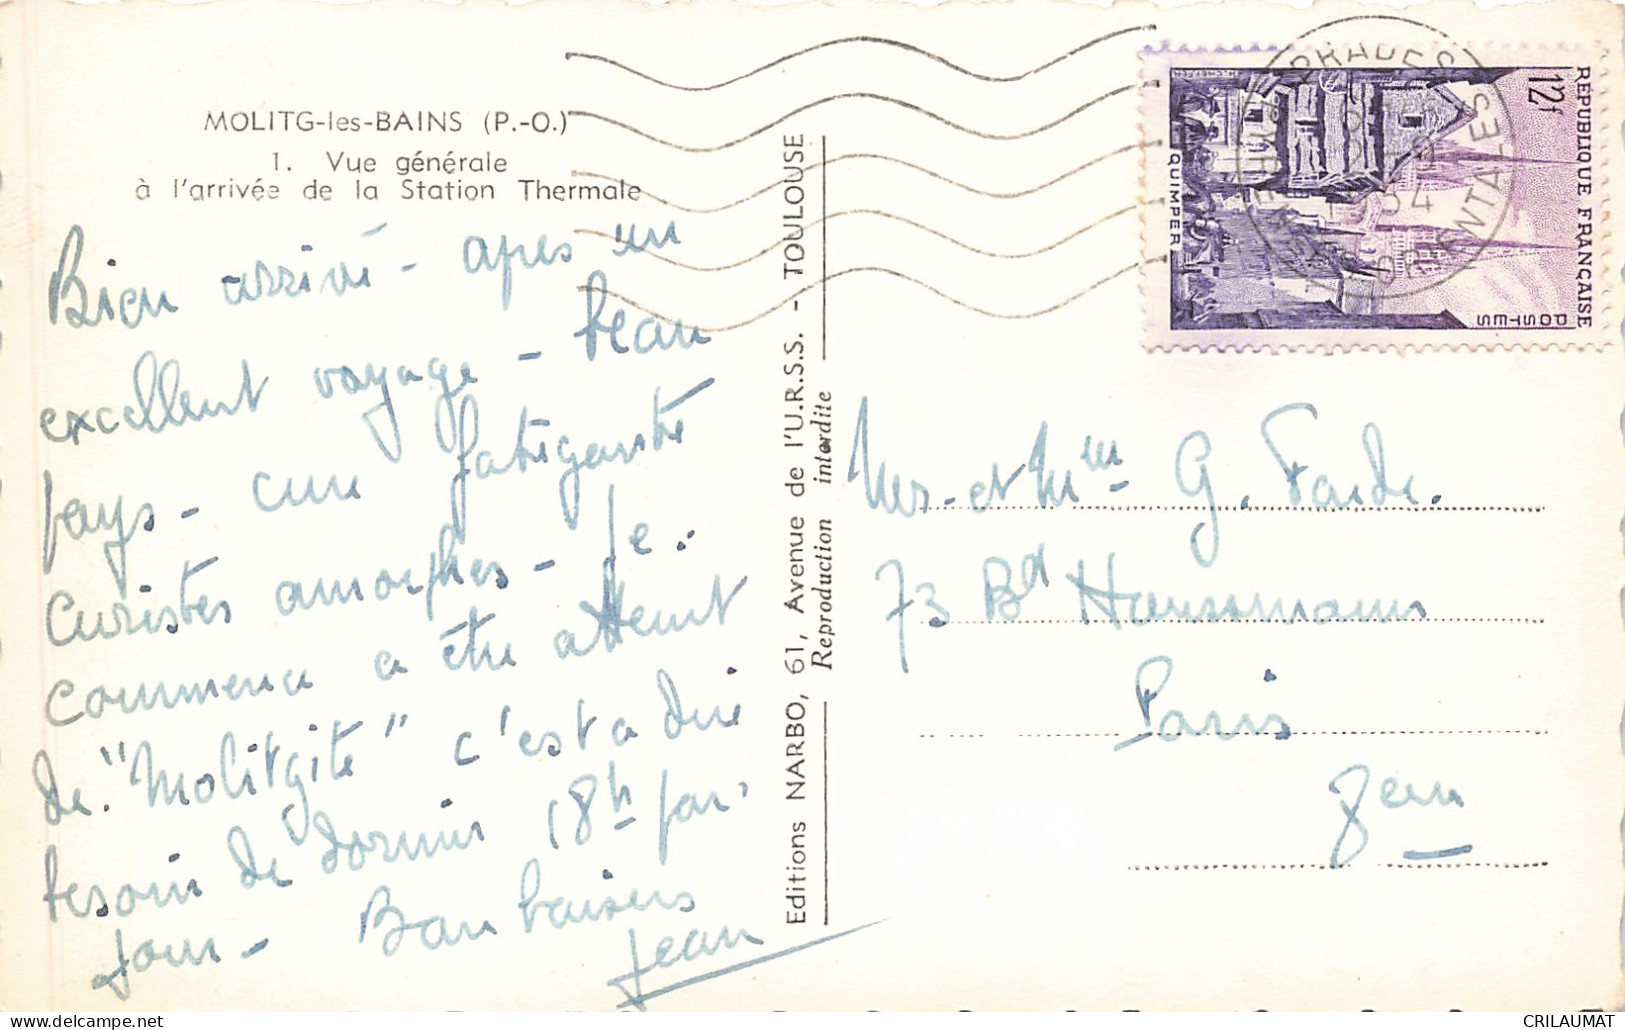 MOLITG-les-BAINS (P.-O.)
1. Vue générale
à l'arrivée de la Station Thermale
Bien arrivé - après un
excellent voyage - beau
pays - cure fatigante
Curistes amorphes - Je
commence a être atteint
de "Molitgite" c'est a dire
besoin de dormir 18h par
jour - Bons baisers
Jean
Editions NARBO, 61, Avenue de l'U.R.S.S. - TOULOUSE
Reproduction interdite
REPUBLIQUE FRANÇAISE
POSTES
12f
QUIMPER
PRADES
PYRENEES ORIENTALES
Mr. et Mme G. Faide.
73 Bd Haussmann
Paris
8em
CRILAUMAT